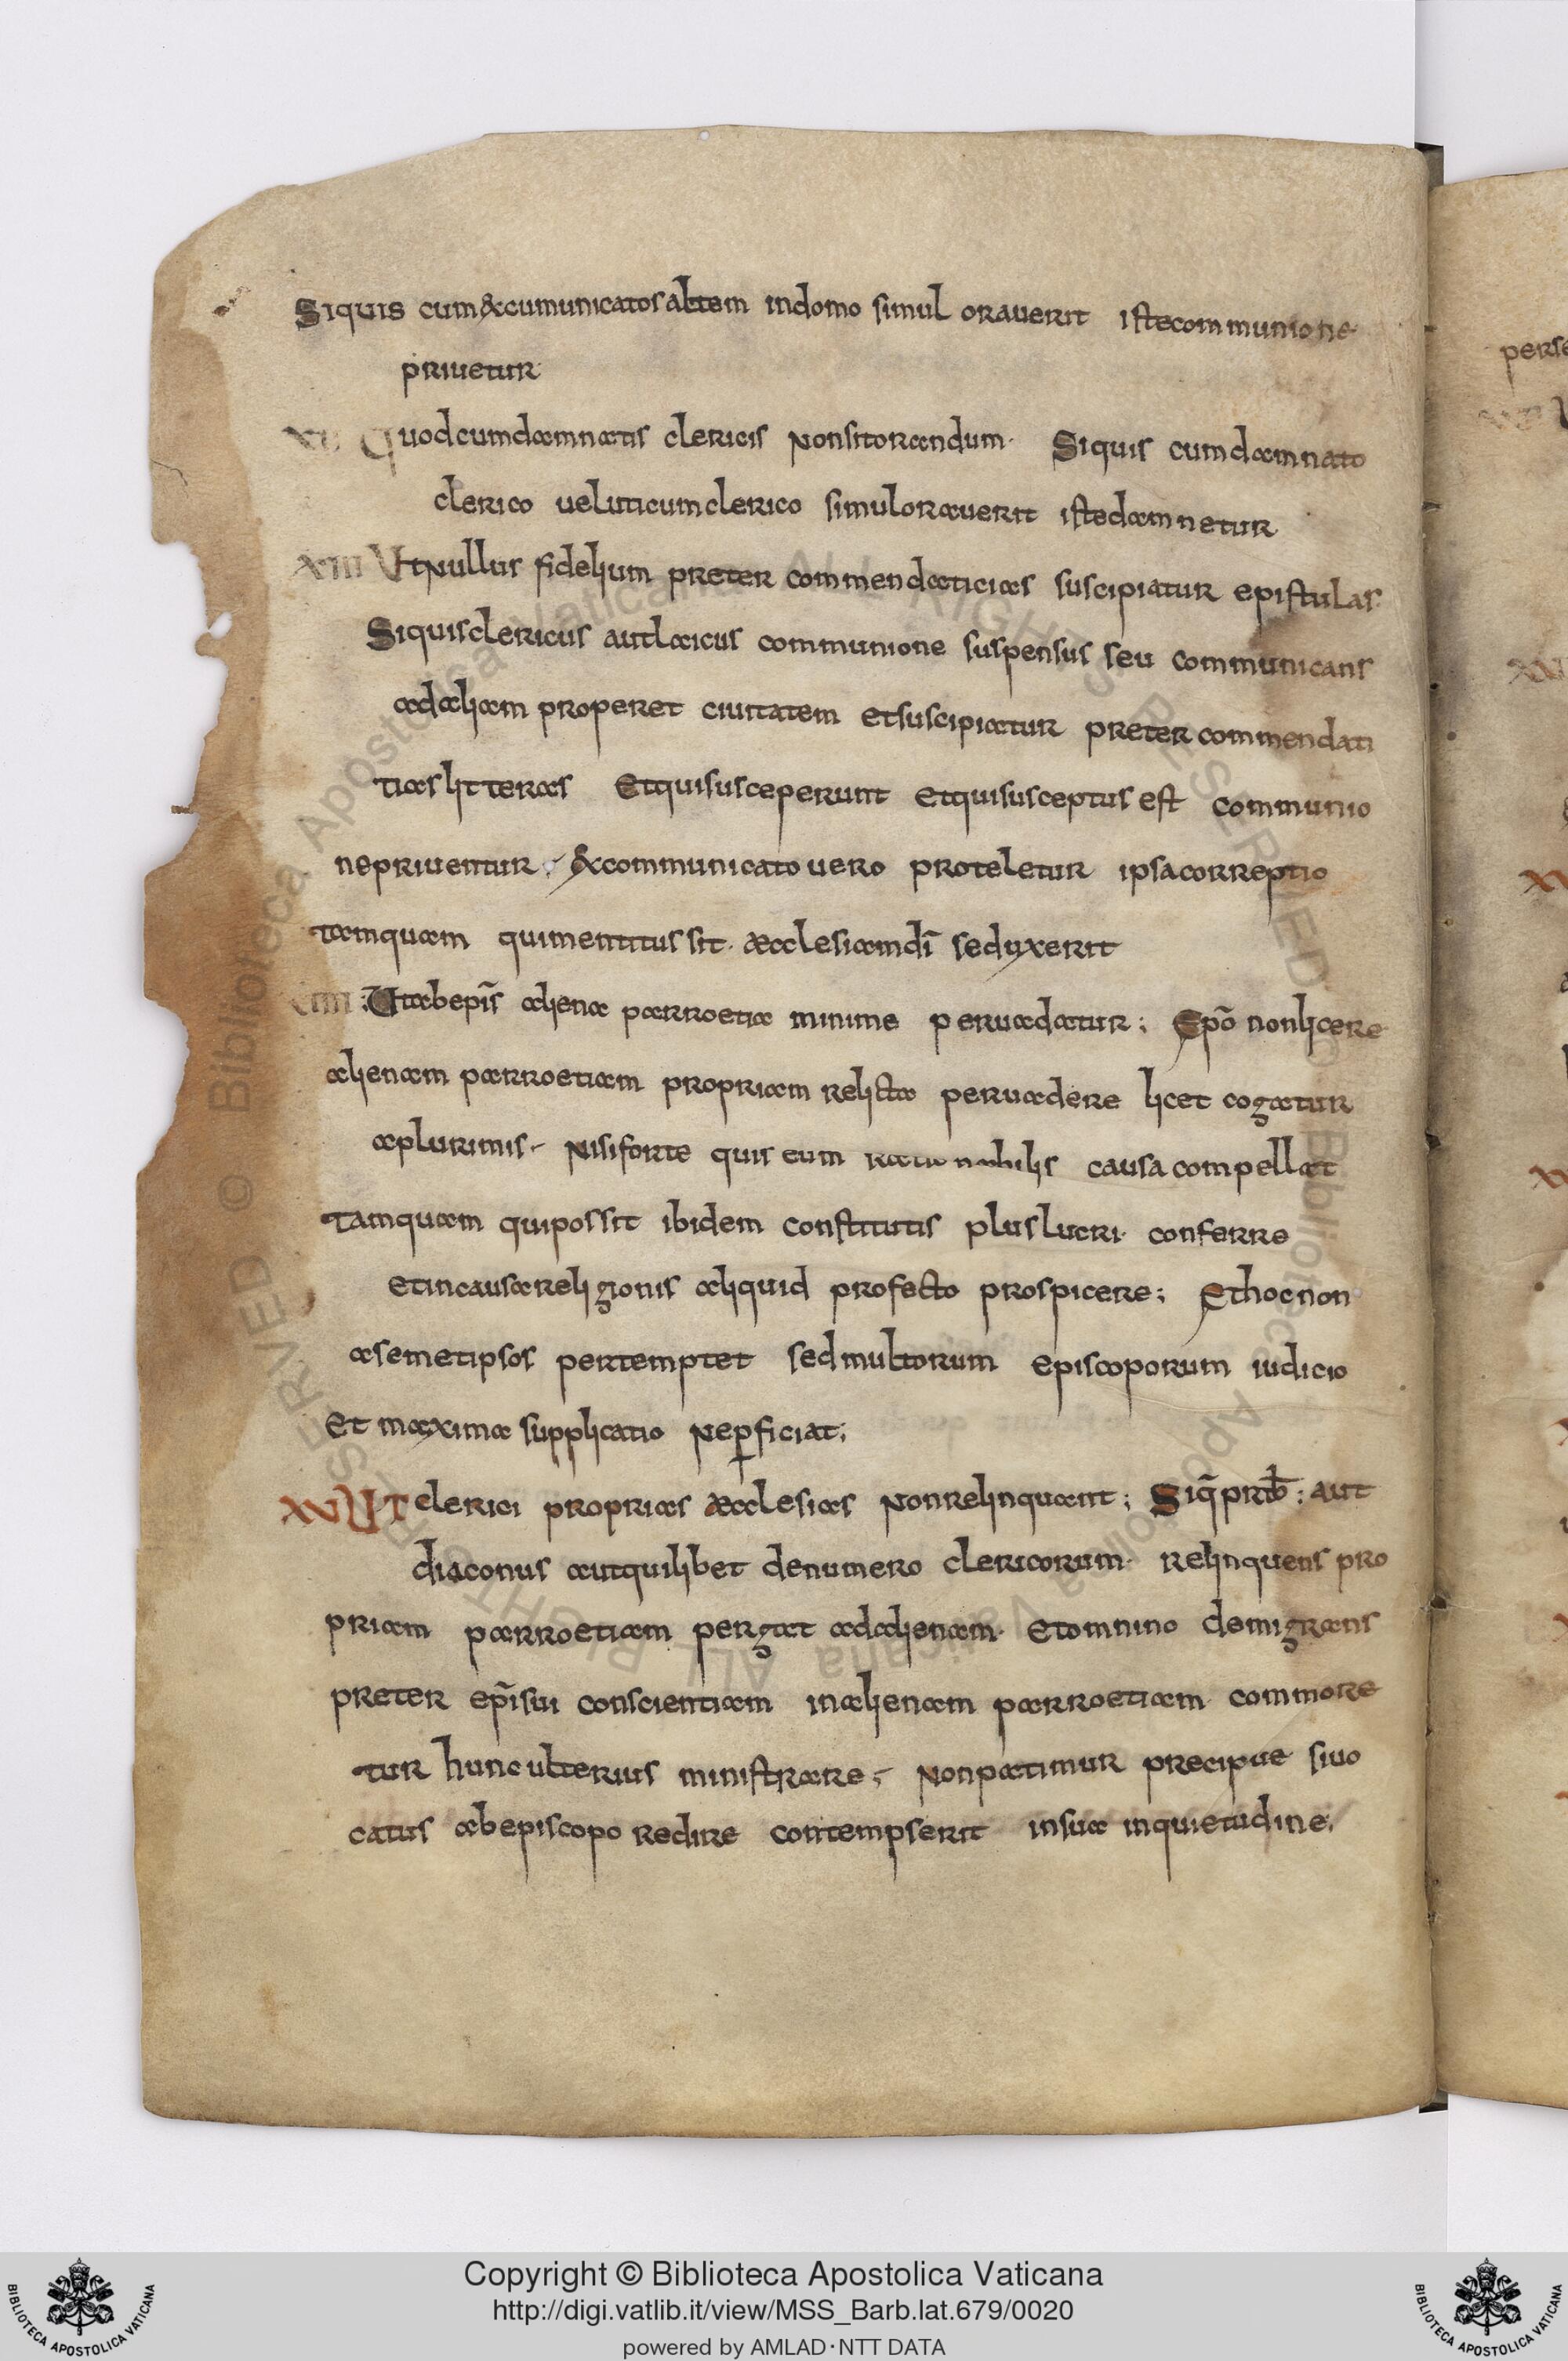 Siquis cum&cumunicatosaltem indomo simul orauerit istecommunione
priuetur
XII Quodcumdamnatis clericis nonsitorandum· Siquis cumdamnato
clerico ueluticumclerico simulorauerit istedamnetur
XIII UtNullus fidelium preter commendaticias suscipiatur epistulas·
Siquisclericus autlaicus communione suspensus seu communicans
adaliam properet ciuitatem etsuscipiatur preter commendati
tiaslitteras Etquisusceperunt etquisusceptus est communio
nepriuentur· &communicato uero proteletur ipsacorreptio
tamquam quimentitus sit· aecclesiamdī seduxerit
XIIII :Utabepīs aliena parroetia minime peruadatur; Epō nonlicere
alienam parroetiam propriam relicta peruadere licet cogatur
aplurimis· Nisiforte quis eum rationabilis causa compellat
Tamquam quipossit ibidem constitutis pluslucri· conferre
etincausareligionis aliquid profecto prospicere; Ethocnon
asemetipsos pertemptet sed multorum episcoporum iudicio
Et maxima supplicatio Neꝑficiat;
XV UT clerici proprias aecclesias Nonrelinquant; Siq̄ prƀt; aut
diaconus autquilibet denumero clericorum· relinquens pro
priam parroetiam pergat adalienam· Etomnino demigrans
preter ep̄isui conscientiam inalienam parroetiam commore
tur hunc ulterius ministrare; Nonpatimur precipue siuo
catus abepiscopo redire contempserit insua inquietudine;
Copyright © Biblioteca Apostolica Vaticana
http://digi.vatlib.it/view/MSS_Barb.lat.679/0020
powered by AMLAD·NTT DATA